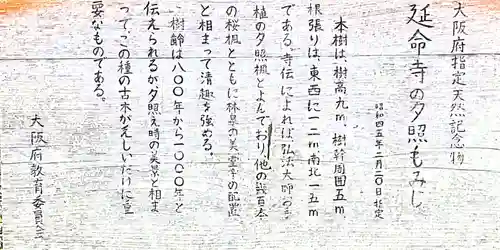 大阪府指定天然記念物
延命寺の夕照もみじ
昭和四五年二月二〇日指定
本樹は、樹高九m、樹幹周囲五m、
根張りは、東西に一二m南北一五m
である。寺伝によれば、弘法大師お手
植の夕照楓とよんでおり、他の幾百本
の桜楓とともに林泉の美堂宇の配置
と相まって清趣を強める。
樹齢は八〇〇年から一〇〇〇年と
伝えられるが夕照え時の美景と相ま
って、この種の古木が乏しいだけに重
要なものである。
大阪府教育委員会